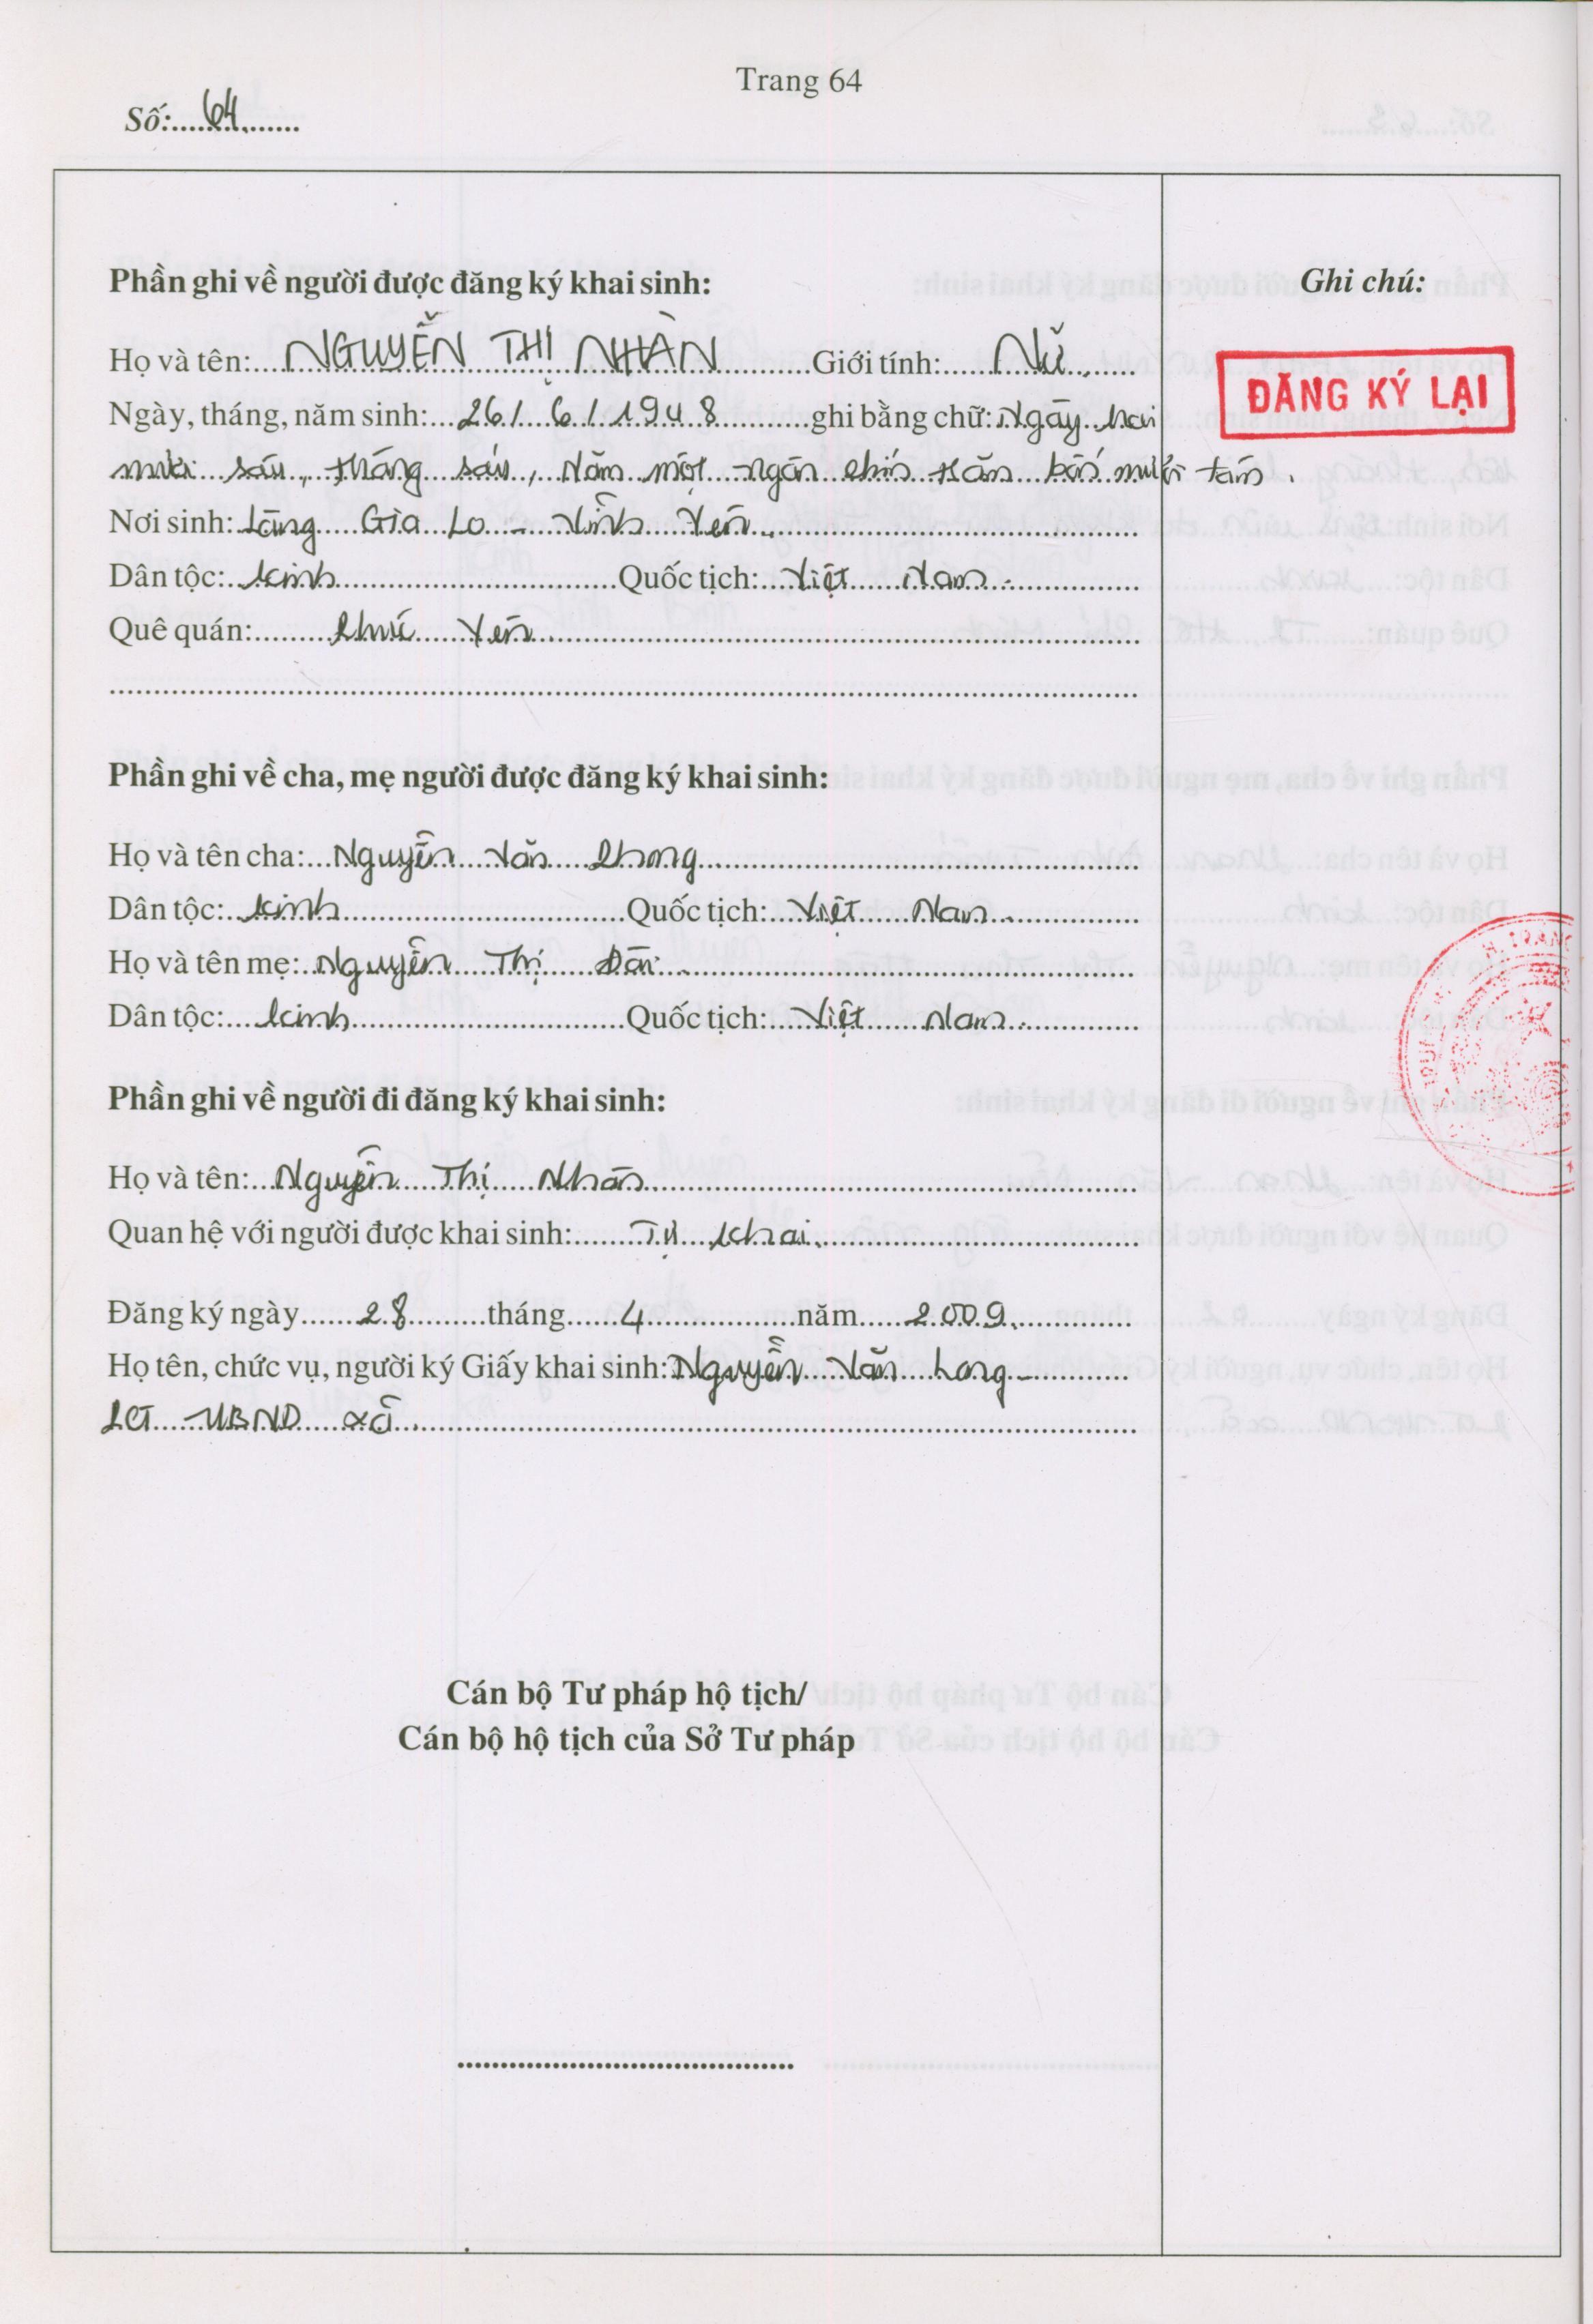 Trang 64
Số: 64
Phần ghi về người được đăng ký khai sinh:
Ghi chú:
Họ và tên: NGUYỄN THỊ NHÀN Giới tính: Nữ
ĐĂNG KÝ LẠI
Ngày, tháng, năm sinh: 26/6/1948 ghi bằng chữ: Ngày hai
mươi sáu, tháng sáu, năm một ngàn chín trăm bốn mươi tám.
Nơi sinh: Làng Gia Lo - Vĩnh Yên
Dân tộc: kinh Quốc tịch: Việt Nam.
Quê quán: Phúc Yên
Phần ghi về cha, mẹ người được đăng ký khai sinh:
Họ và tên cha: Nguyễn Văn Phong
Dân tộc: kinh Quốc tịch: Việt Nam
Họ và tên mẹ: Nguyễn Thị
Dân tộc: kinh Quốc tịch: Việt Nam.
Phần ghi về người đi đăng ký khai sinh:
Họ và tên: Nguyễn Thị Nhàn
Quan hệ với người được khai sinh: Tự khai.
Đăng ký ngày 28 tháng 4 năm 2009
Họ tên, chức vụ, người ký Giấy khai sinh: Nguyễn Văn Long -
PCT UBND xã
Cán bộ Tư pháp hộ tịch/
Cán bộ hộ tịch của Sở Tư pháp